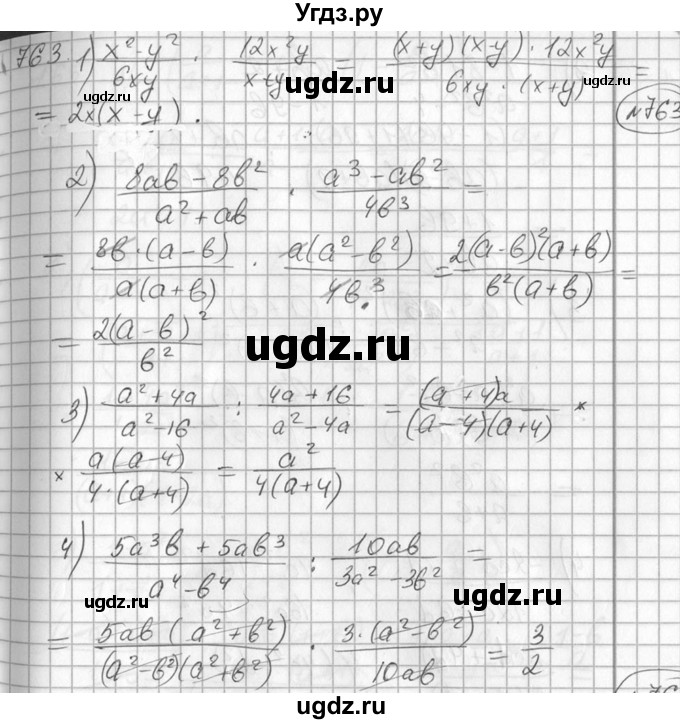 Угдз.ру
763 1) (x² - y²)/(6xy) · (12x²y)/(x+y) = ((x+y)(x-y) · 12x²y)/(6xy · (x+y)) =
ugdz.ru ugdz.ru ugdz.ru
= 2x(x - y).
№763
2) (8ab - 8b²)/(a² + ab) · (a³ - ab²)/(4b³) =
= (8b · (a - b))/(a(a + b)) · (a(a² - b²))/(4b³) = (2(a - b)²(a + b))/(b²(a + b)) =
= (2(a - b)²)/(b²)
ugdz.ru ugdz.ru
3) (a² + 4a)/(a² - 16) : (4a + 16)/(a² - 4a) = ((a + 4)a)/((a - 4)(a + 4)) ×
× (a(a - 4))/(4 · (a + 4)) = (a²)/(4(a + 4))
4) (5a³b + 5ab³)/(a⁴ - b⁴) : (10ab)/(3a² - 3b²) =
ugdz.ru ugdz.ru
= (5ab(a² + b²))/((a² - b²)(a² + b²)) · (3 · (a² - b²))/(10ab) = 3/2
ugdz.ru